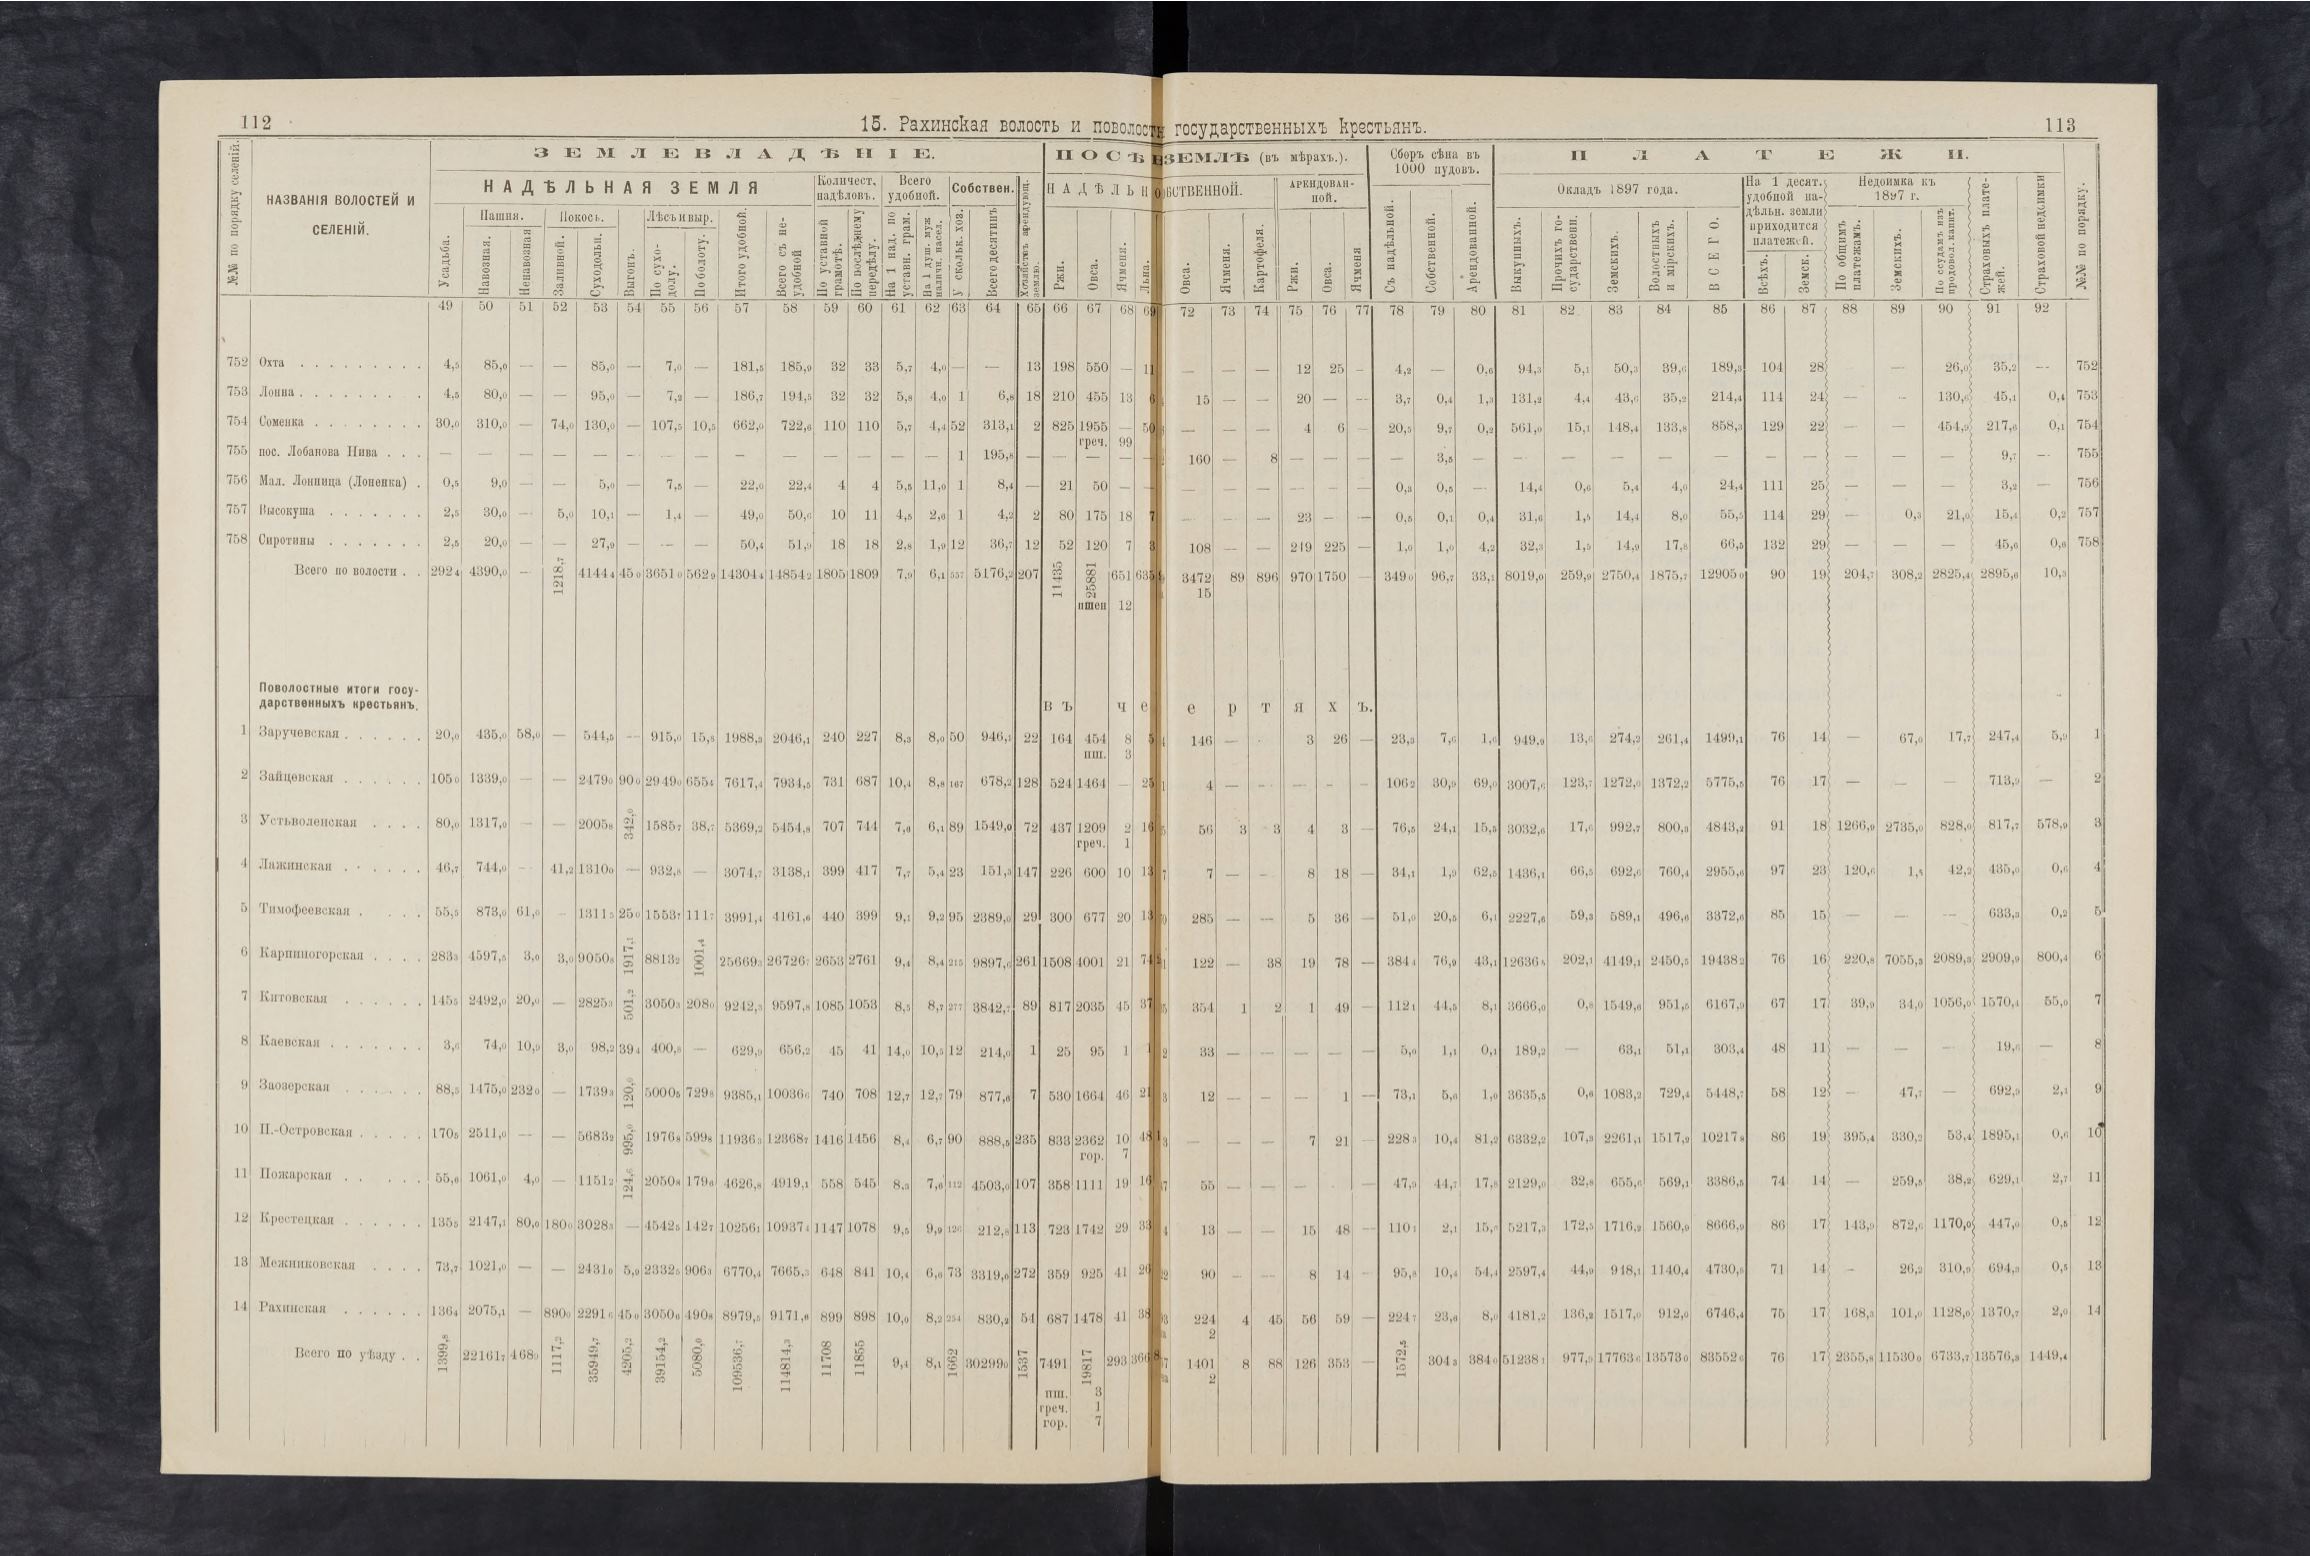 112
15. Рахинская волость и поволостн государственныхъ крестьянъ.
113
№№ по порядку селеній.
НАЗВАНІЯ ВОЛОСТЕЙ И
СЕЛЕНІЙ.
ЗЕМЛЕВЛАДѢНІЕ.
НАДѢЛЬНАЯ ЗЕМЛЯ
Количест. надѣловъ.
Всего удобной.
Собствен.
Хозяйствъ арендующ. землю.
Усадьба.
Пашня.
Навозная.
Ненавозная
Покосъ.
Заливной.
Суходольн.
Выгонъ.
Лѣсъ и выр.
По сухо-долу.
По болоту.
Итого удобной.
Всего съ не-удобной
По уставной грамотѣ.
По послѣднему передѣлу.
На 1 над. по уставн. грам.
На 1 душ. муж. наличн. насел.
У скольк. хоз.
Всего десятинъ
ПОСѢВ
ЗЕМЛѢ (въ мѣрахъ.).
НАДѢЛЬНО
БСТВЕННОЙ.
АРЕНДОВАН-НОЙ.
Ржи.
Овса.
Ячменя.
Льна.
Овса.
Ячменя.
Картофеля.
Ржи.
Овса.
Ячменя
Сборъ сѣна въ 1000 пудовъ.
Съ надѣльной.
Собственной.
Арендованной.
ПЛАТЕЖИ.
Окладъ 1897 года.
Выкупныхъ.
Прочихъ го-сударственн.
Земскихъ.
Волостныхъ и мірскихъ.
ВСЕГО.
На 1 десят. удобной на-дѣльн. земли приходится платежей.
Всѣхъ.
Земск.
Недоимка къ 1897 г.
По общимъ платежамъ.
Земскихъ.
По ссудамъ изъ продовол. капит.
Страховыхъ плате-жей.
Страховой недоимки
№№ по порядку.
49 50 51 52 53 54 55 56 57 58 59 60 61 62 63 64 65 66 67 68 69 72 73 74 75 76 77 78 79 80 81 82 83 84 85 86 87 88 89 90 91 92
752 Охта . . . . . . . . . 4,5 85,0 — — 85,0 — 7,0 — 181,5 185,9 32 33 5,7 4,0 — — 13 198 550 — 11 — — — 12 25 — 4,2 — 0,6 94,3 5,1 50,3 39,6 189,3 104 28 — 26,0 35,2 — 752
753 Лонна . . . . . . . . 4,5 80,0 — — 95,0 — 7,2 — 186,7 194,5 32 32 5,8 4,0 1 6,8 18 210 455 13 6 15 — — 20 — — 3,7 0,4 1,3 131,2 4,4 43,6 35,2 214,4 114 24 — - 130,6 45,1 0,4 753
754 Соменка . . . . . . . . 30,0 310,0 — 74,0 130,0 — 107,5 10,5 662,0 722,6 110 110 5,7 4,4 52 313,1 2 825 1955 — 50 — — — 4 6 — 20,5 9,7 0,2 561,0 15,1 148,4 133,8 858,3 129 22 — — 454,9 217,6 0,1 754
греч. 99
755 пос. Лобанова Нива . . . — — — — — — — — — — — — — — 1 195,8 — — — — — 160 — 8 — — — — 3,5 — — — — — — — — — — — 9,7 — 755
756 Мал. Лонница (Лоненка) . 0,5 9,0 — — 5,0 — 7,5 — 22,0 22,4 4 4 5,5 11,0 1 8,4 — 21 50 — — — — — — — — 0,3 0,5 — 14,4 0,6 5,4 4,0 24,4 111 25 — — — 3,2 — 756
757 Высокуша . . . . . . . 2,5 30,0 — 5,0 10,1 — 1,4 — 49,0 50,6 10 11 4,5 2,6 1 4,2 2 80 175 18 7 — — — 23 — — 0,5 0,1 0,4 31,6 1,5 14,4 8,0 55,5 114 29 — 0,3 21,0 15,4 0,2 757
758 Сиротины . . . . . . . 2,5 20,0 — — 27,9 — — — 50,4 51,9 18 18 2,8 1,9 12 36,7 12 52 120 7 3 108 — — 219 225 — 1,0 1,0 4,2 32,3 1,5 14,9 17,8 66,5 132 29 — — — 45,6 0,6 758
Всего по волости . . 292 4 4390,0 — 1218,7 4144 4 45 0 3651 0 562 9 14304 4 14854 2 1805 1809 7,9 6,1 557 5176,2 207 11435 25881 651 635 3472 89 896 970 1750 — 349 0 96,7 33,1 8019,0 259,9 2750,4 1875,7 12905 0 90 19 204,7 308,2 2825,4 2895,6 10,3
пшен 12 15
Поволостные итоги госу-
дарственныхъ крестьянъ.
ВЪ Ч Е Е Р Т Я Х Ъ.
1 Заручевская . . . . . . 20,0 435,0 58,0 — 544,5 — 915,0 15,8 1988,3 2046,1 240 227 8,3 8,0 50 946,1 22 164 454 8 5 146 — · 3 26 — 23,3 7,6 1,6 949,9 13,6 274,2 261,4 1499,1 76 14 — 67,0 17,7 247,4 5,9 1
пш. 3
2 Зайцевская . . . . . . 105 0 1339,0 — — 2479 0 90 0 2949 0 655 4 7617,4 7934,5 731 687 10,4 8,8 167 678,2 128 524 1464 — 25 4 — - — - 106 2 30,9 69,0 3007,6 123,7 1272,0 1372,2 5775,5 76 17 — — — 713,9 — 2
3 Устьволенская . . . . 80,0 1317,0 — — 2005 8 342,0 1585 7 38,7 5369,2 5454,8 707 744 7,6 6,1 89 1549,0 72 437 1209 2 16 56 3 3 4 3 — 76,5 24,1 15,5 3032,6 17,6 992,7 800,3 4843,2 91 18 1266,9 2735,0 828,0 817,7 578,9 3
греч. 1
4 Лажинская . . . . . . 46,7 744,0 — 41,2 1310 0 — 932,8 — 3074,7 3138,1 399 417 7,7 5,4 23 151,3 147 226 600 10 13 7 — - 8 18 — 34,1 1,9 62,5 1436,1 66,5 692,6 760,4 2955,6 97 23 120,6 1,5 42,2 435,0 0,6 4
5 Тимофеевская . . . . 55,5 873,0 61,0 - 1311 5 25 0 1553 7 111 7 3991,4 4161,6 440 399 9,1 9,2 95 2389,0 29 300 677 20 13 285 — — 5 36 — 51,0 20,5 6,1 2227,6 59,3 589,1 496,6 3372,6 85 15 — — — 633,3 0,2 5
6 Карпиногорская . . . . 283 3 4597,5 3,0 3,0 9050 8 1917,1 8813 2 1001,4 25669 3 26726 7 2653 2761 9,4 8,4 215 9897,6 261 1508 4001 21 74 122 — 38 19 78 — 384 4 76,9 43,1 12636 8 202,1 4149,1 2450,5 19438 2 76 16 220,8 7055,3 2089,3 2909,9 800,4 6
7 Китовская . . . . . . 145 5 2492,0 20,0 — 2825 3 501,2 3050 3 208 0 9242,3 9597,8 1085 1053 8,5 8,7 277 3842,7 89 817 2035 45 37 354 1 2 1 49 — 112 1 44,5 8,1 3666,0 0,8 1549,6 951,5 6167,9 67 17 39,9 34,0 1056,0 1570,4 55,0 7
8 Каевская . . . . . . . 3,6 74,0 10,9 3,0 98,2 39 4 400,8 — 629,9 656,2 45 41 14,0 10,5 12 214,0 1 25 95 1 1 33 — — — — — 5,0 1,1 0,1 189,2 — 63,1 51,1 303,4 48 11 — — - 19,6 — 8
9 Заозерская . . . . . . 88,5 1475,0 232 0 — 1739 3 120,0 5000 5 729 8 9385,1 10036 6 740 708 12,7 12,7 79 877,6 7 530 1664 46 21 12 — — — 1 — 73,1 5,6 1,0 3635,5 0,6 1083,2 729,4 5448,7 58 12 - 47,7 — 692,9 2,1 9
10 П.-Островская . . . . . 170 5 2511,0 — — 5683 2 995,0 1976 8 599 8 11936 3 12368 7 1416 1456 8,4 6,7 90 888,5 235 833 2362 10 48 — — — 7 21 — 228 3 10,4 81,2 6332,2 107,3 2261,1 1517,9 10217 8 86 19 395,4 330,2 53,4 1895,1 0,6 10
гор. 7
11 Пожарская . . . . . . 55,6 1061,0 4,0 — 1151 2 124,6 2050 8 179 6 4626,8 4919,1 558 545 8,3 7,6 112 4503,0 107 358 1111 19 16 55 — — — · — 47,9 44,7 17,8 2129,0 32,8 655,6 569,1 3386,5 74 14 — 259,5 38,2 629,1 2,7 11
12 Крестецкая . . . . . . 135 5 2147,1 80,0 180 0 3028 3 — 4542 5 142 7 10256 1 10937 4 1147 1078 9,5 9,9 126 212,8 113 723 1742 29 33 13 — — 15 48 — 110 1 2,1 15,6 5217,3 172,5 1716,2 1560,9 8666,9 86 17 143,9 872,6 1170,0 447,0 0,5 12
13 Межниковская . . . . 73,7 1021,0 — — 2431 0 5,0 2332 5 906 3 6770,4 7665,3 648 841 10,4 6,6 73 3319,0 272 359 925 41 26 90 — — 8 14 — 95,8 10,4 54,4 2597,4 44,9 948,1 1140,4 4730,8 71 14 - 26,2 310,9 694,3 0,5 13
14 Рахинская . . . . . . 136 4 2075,1 — 890 0 2291 6 45 0 3050 6 490 8 8979,5 9171,6 899 898 10,0 8,2 254 830,2 54 687 1478 41 38 224 4 45 56 59 — 224 7 23,6 8,0 4181,2 136,2 1517,0 912,0 6746,4 75 17 168,3 101,0 1128,0 1370,7 2,0 14
2
Всего по уѣзду . . 1399,8 22161 7 468 9 1117,2 35949,7 4205,2 39154,2 5080,0 109536,7 114814,3 11708 11855 9,4 8,1 1662 30299 0 1537 7491 19817 293 366 1401 8 88 126 353 — 1572,5 304 3 384 0 51238 1 977,9 17763 6 13573 0 83552 6 76 17 2355,8 11530 0 6733,7 13576,3 1449,4
2
пш. 3
греч. 1
гор. 7